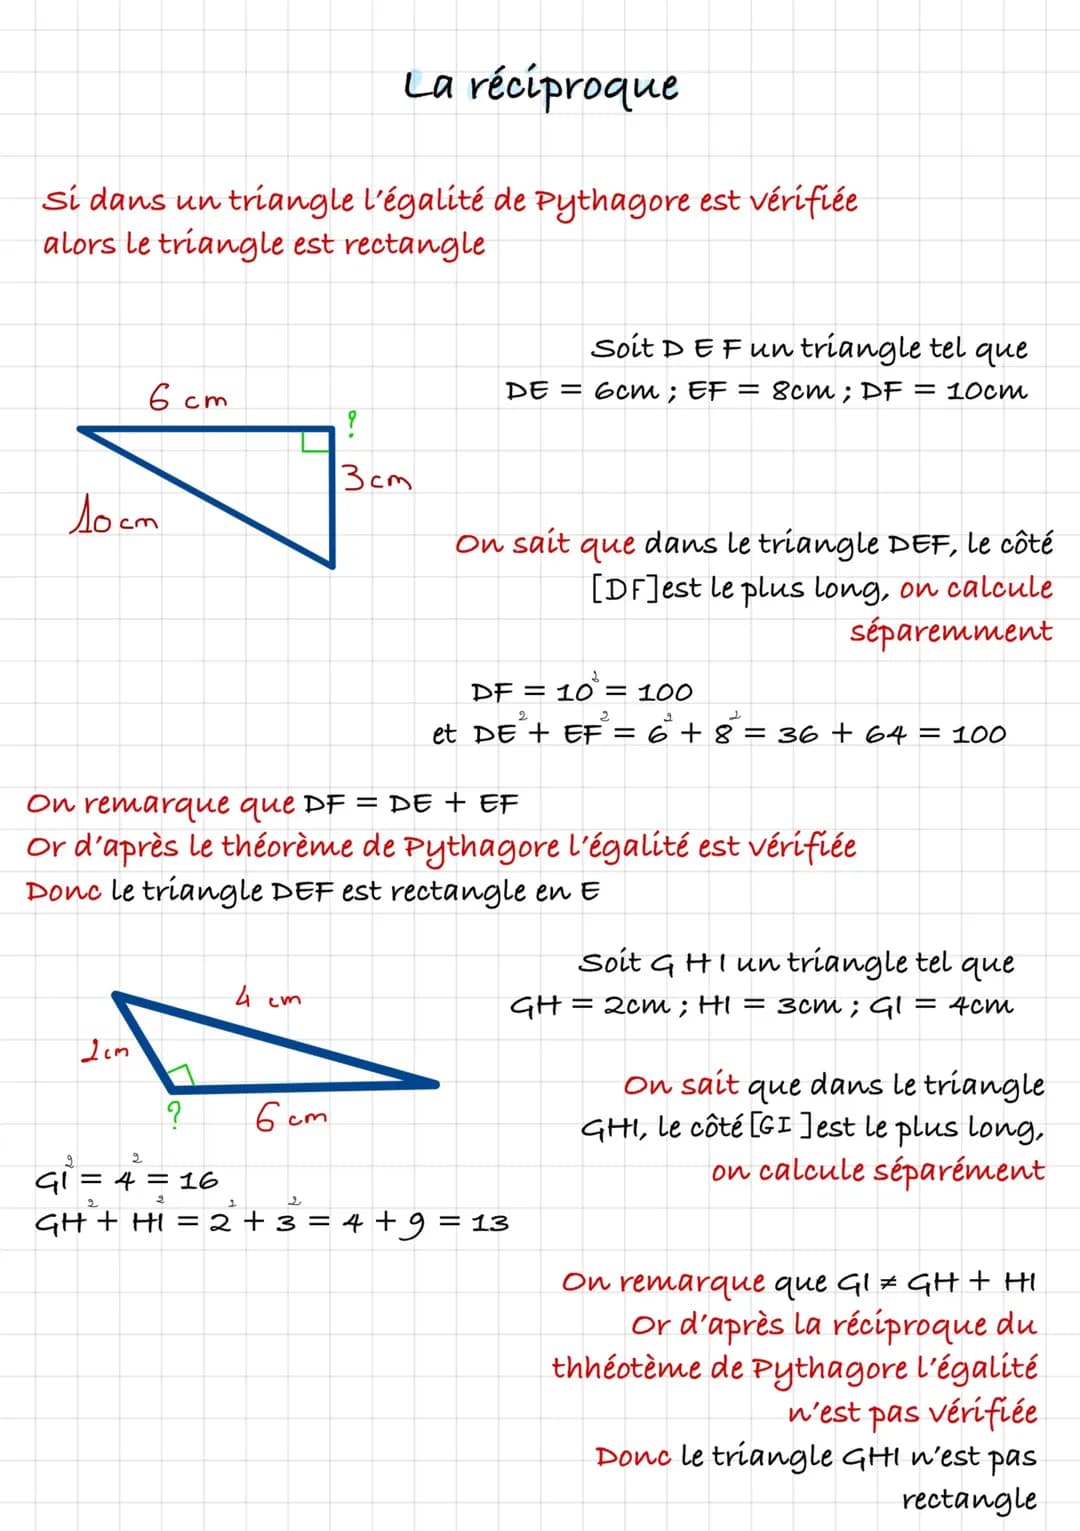 La réciproque
Si dans un triangle l'égalité de Pythagore est vérifiée
alors le triangle est rectangle
Soit D E F un triangle tel que
DE = 6cm ; EF = 8cm ; DF = 10cm
6 cm
?
3 cm
10 cm
On sait que dans le triangle DEF, le côté
[DF]est le plus long, on calcule
séparemment
DF = 10² = 100
et DE² + EF² = 6² + 8² = 36 + 64 = 100
On remarque que DF = DE + EF
Or d'après le théorème de Pythagore l'égalité est vérifiée
Donc le triangle DEF est rectangle en E
Soit G H I un triangle tel que
GH = 2cm ; HI = 3cm ; GI = 4cm
4 cm
2 cm
?
6 cm
On sait que dans le triangle
GHI, le côté [GI ]est le plus long,
on calcule séparément
GI² = 4² = 16
GH² + HI² = 2² + 3² = 4 + 9 = 13
On remarque que GI ≠ GH + HI
Or d'après la réciproque du
thhéotème de Pythagore l'égalité
n'est pas vérifiée
Donc le triangle GHI n'est pas
rectangle